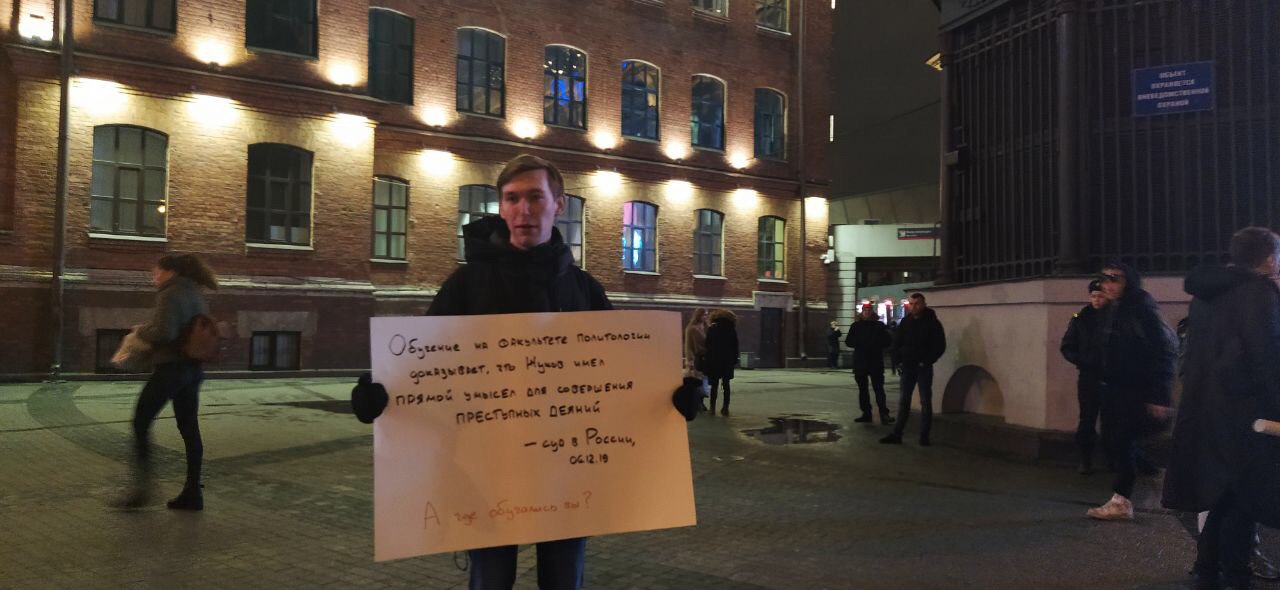 Обучение на факультете политологии
доказывает, что Жуков имел
прямой умысел для совершения
преступных деяний
— суд в России,
06.12.19
А где обучались вы?
ОБЪЕКТ
ОХРАНЯЕТСЯ
ВНЕВЕДОМСТВЕННОЙ
ОХРАНОЙ